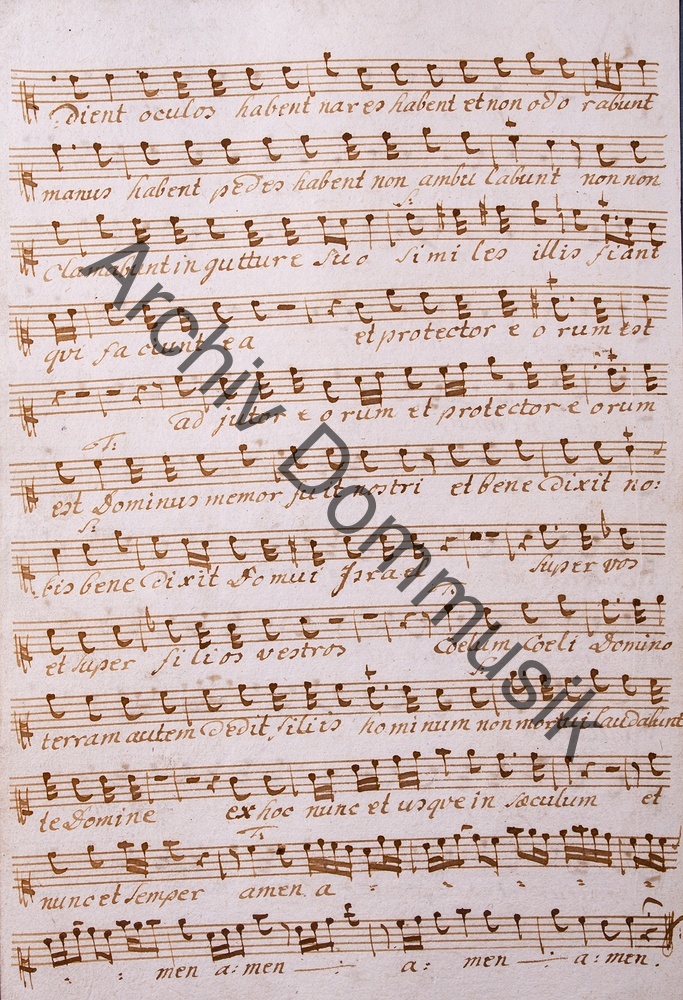 dient oculos habent nares habent et non odo rabunt
manus habent pedes habent non ambu labunt non non
S:
Clamabunt in gutture suo si mi les illis fiant
qui fa ciunt ea et protector e o rum est
ad jutor e o rum et protector e orum
T:
est Dominus memor fuit nostri et bene dixit no:
S:
bis bene dixit Domui Israel super vos
T:
et super filios vestros Coelum Coeli Domino
S:
terram autem dedit filiis hominum non mortui laudabunt
te Domine ex hoc nunc et usqve in sæculum et
T:
nunc et semper amen a
men a: men a: men a: men.
Archiv Dommusik